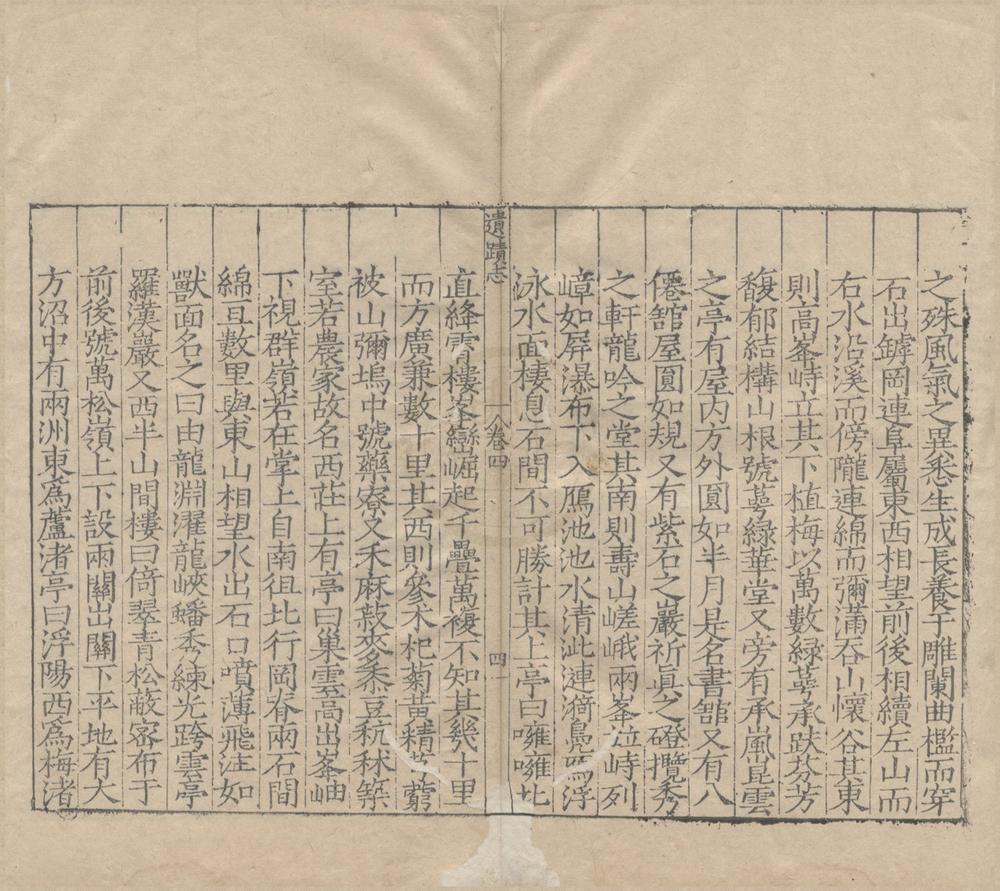 之殊風氣之異悉生成長養于雕闌曲檻而穿
石出罅岡連阜屬東西相望前後相續左山而
右水沿溪而傍隴連綿而彌蒲吞山懷谷其東
則高峯峙立其下植梅以萬數綠萼承趺芬芳
馥郁結構山根號萼綠華堂又旁有承嵐崑雲
之亭有屋内方外圓如半月是名書舘又有八
僊舘屋圓如規又有紫石之巖祈眞之磴攬秀
之軒龍吟之堂其南則壽山嵯峨兩峯並峙列
嶂如屏瀑布下入鴈池池水清泚連漪鳧鴈浮
泳水面棲息石間不可勝計其上亭曰噰噰北
直絳霄樓峯巒崛起千疊萬複不知其幾十里
而方廣兼數十里其西則參术杞菊黄精芎藭
被山彌塢中號藥寮又禾麻菽麥黍豆秔秫築
室若農家故名西莊上有亭曰巢雲高出峯岫
下視群嶺若在掌上自南徂北行岡脊兩石間
綿亘數里與東山相望水出石口噴薄飛注如
獸面名之曰由龍淵濯龍峽蟠秀練光跨雲亭
羅漢巖又西半山間樓曰倚翠青松蔽密布于
前後號萬松嶺上下設兩關出關下平地有大
方沼中有兩洲東爲蘆渚亭曰浮陽西爲梅渚
遺蹟志
卷四
四